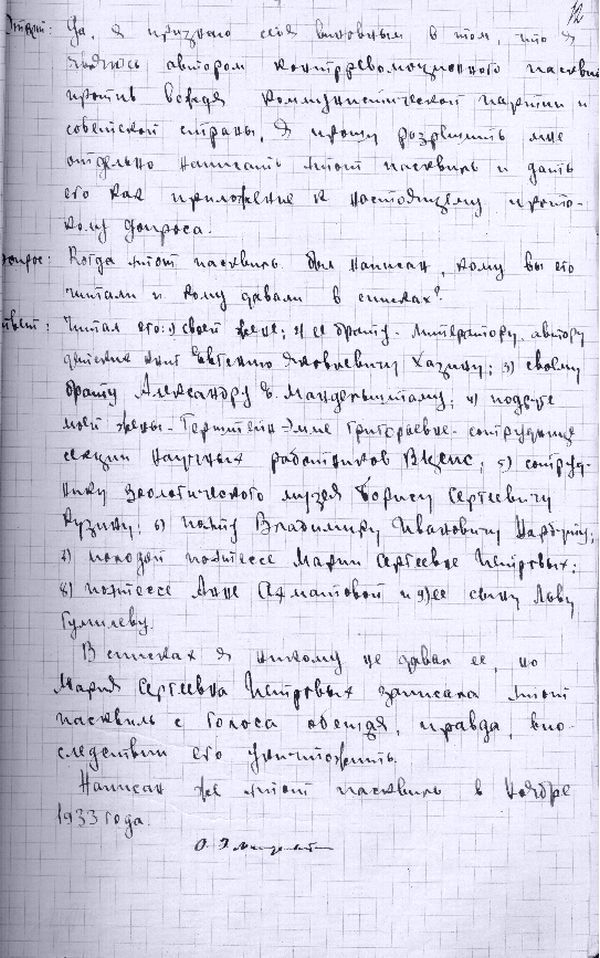 12
Ответ: Да, я признаю себя виновным в том, что я
являюсь автором контрреволюционного пасквиля
против вождя коммунистической партии и
советской страны. Я прошу разрешить мне
отдельно написать этот пасквиль и дать
его как приложение к настоящему прото-
колу допроса.
Вопрос: Когда этот пасквиль был написан, кому вы его
читали и кому давали в списках?
Ответ: Читал его: 1) своей жене; 2) ее брату - литератору, автору
детских книг Евгению Яковлевичу Хазину; 3) своему
брату Александру Э. Мандельштаму; 4) подруге
моей жены - Герштейн Эмме Григорьевне - сотруднице
секции научных работников ВЦСПС; 5) сотруд-
нику зоологического музея Борису Сергеевичу
Кузину; 6) поэту Владимиру Ивановичу Нарбуту;
7) молодой поэтессе Марии Сергеевне Петровых;
8) поэтессе Анне Ахматовой и 9) ее сыну Льву
Гумилеву.
В списках я никому не давал ее, но
Мария Сергеевна Петровых записала этот
пасквиль с голоса обещая, правда, впо-
следствии его уничтожить.
Написан же этот пасквиль в ноябре
1933 года.
О. Э. Мандельштам